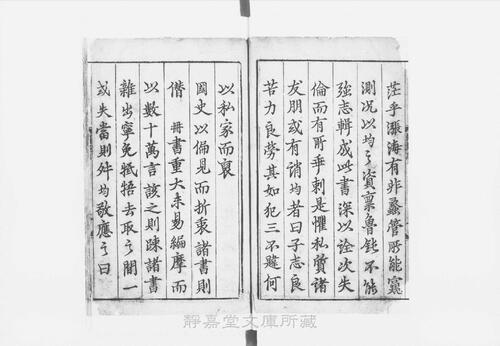 茫乎漲海有非蠡管所能窺
測况以均之資禀魯鈍不能
強志輯成此書深以詮次失
倫而有所乖刺是懼私質諸
友朋或有誚均者曰子志良
苦力良勞其如犯三不韙何
以私家而裒
國史以偏見而折衷諸書則
僣 冊書重大未易編摩而
以數十萬言該之則踈諸書
雜出寧免牴牾去取之間一
或失當則舛均敬應之曰
靜嘉堂文庫所藏